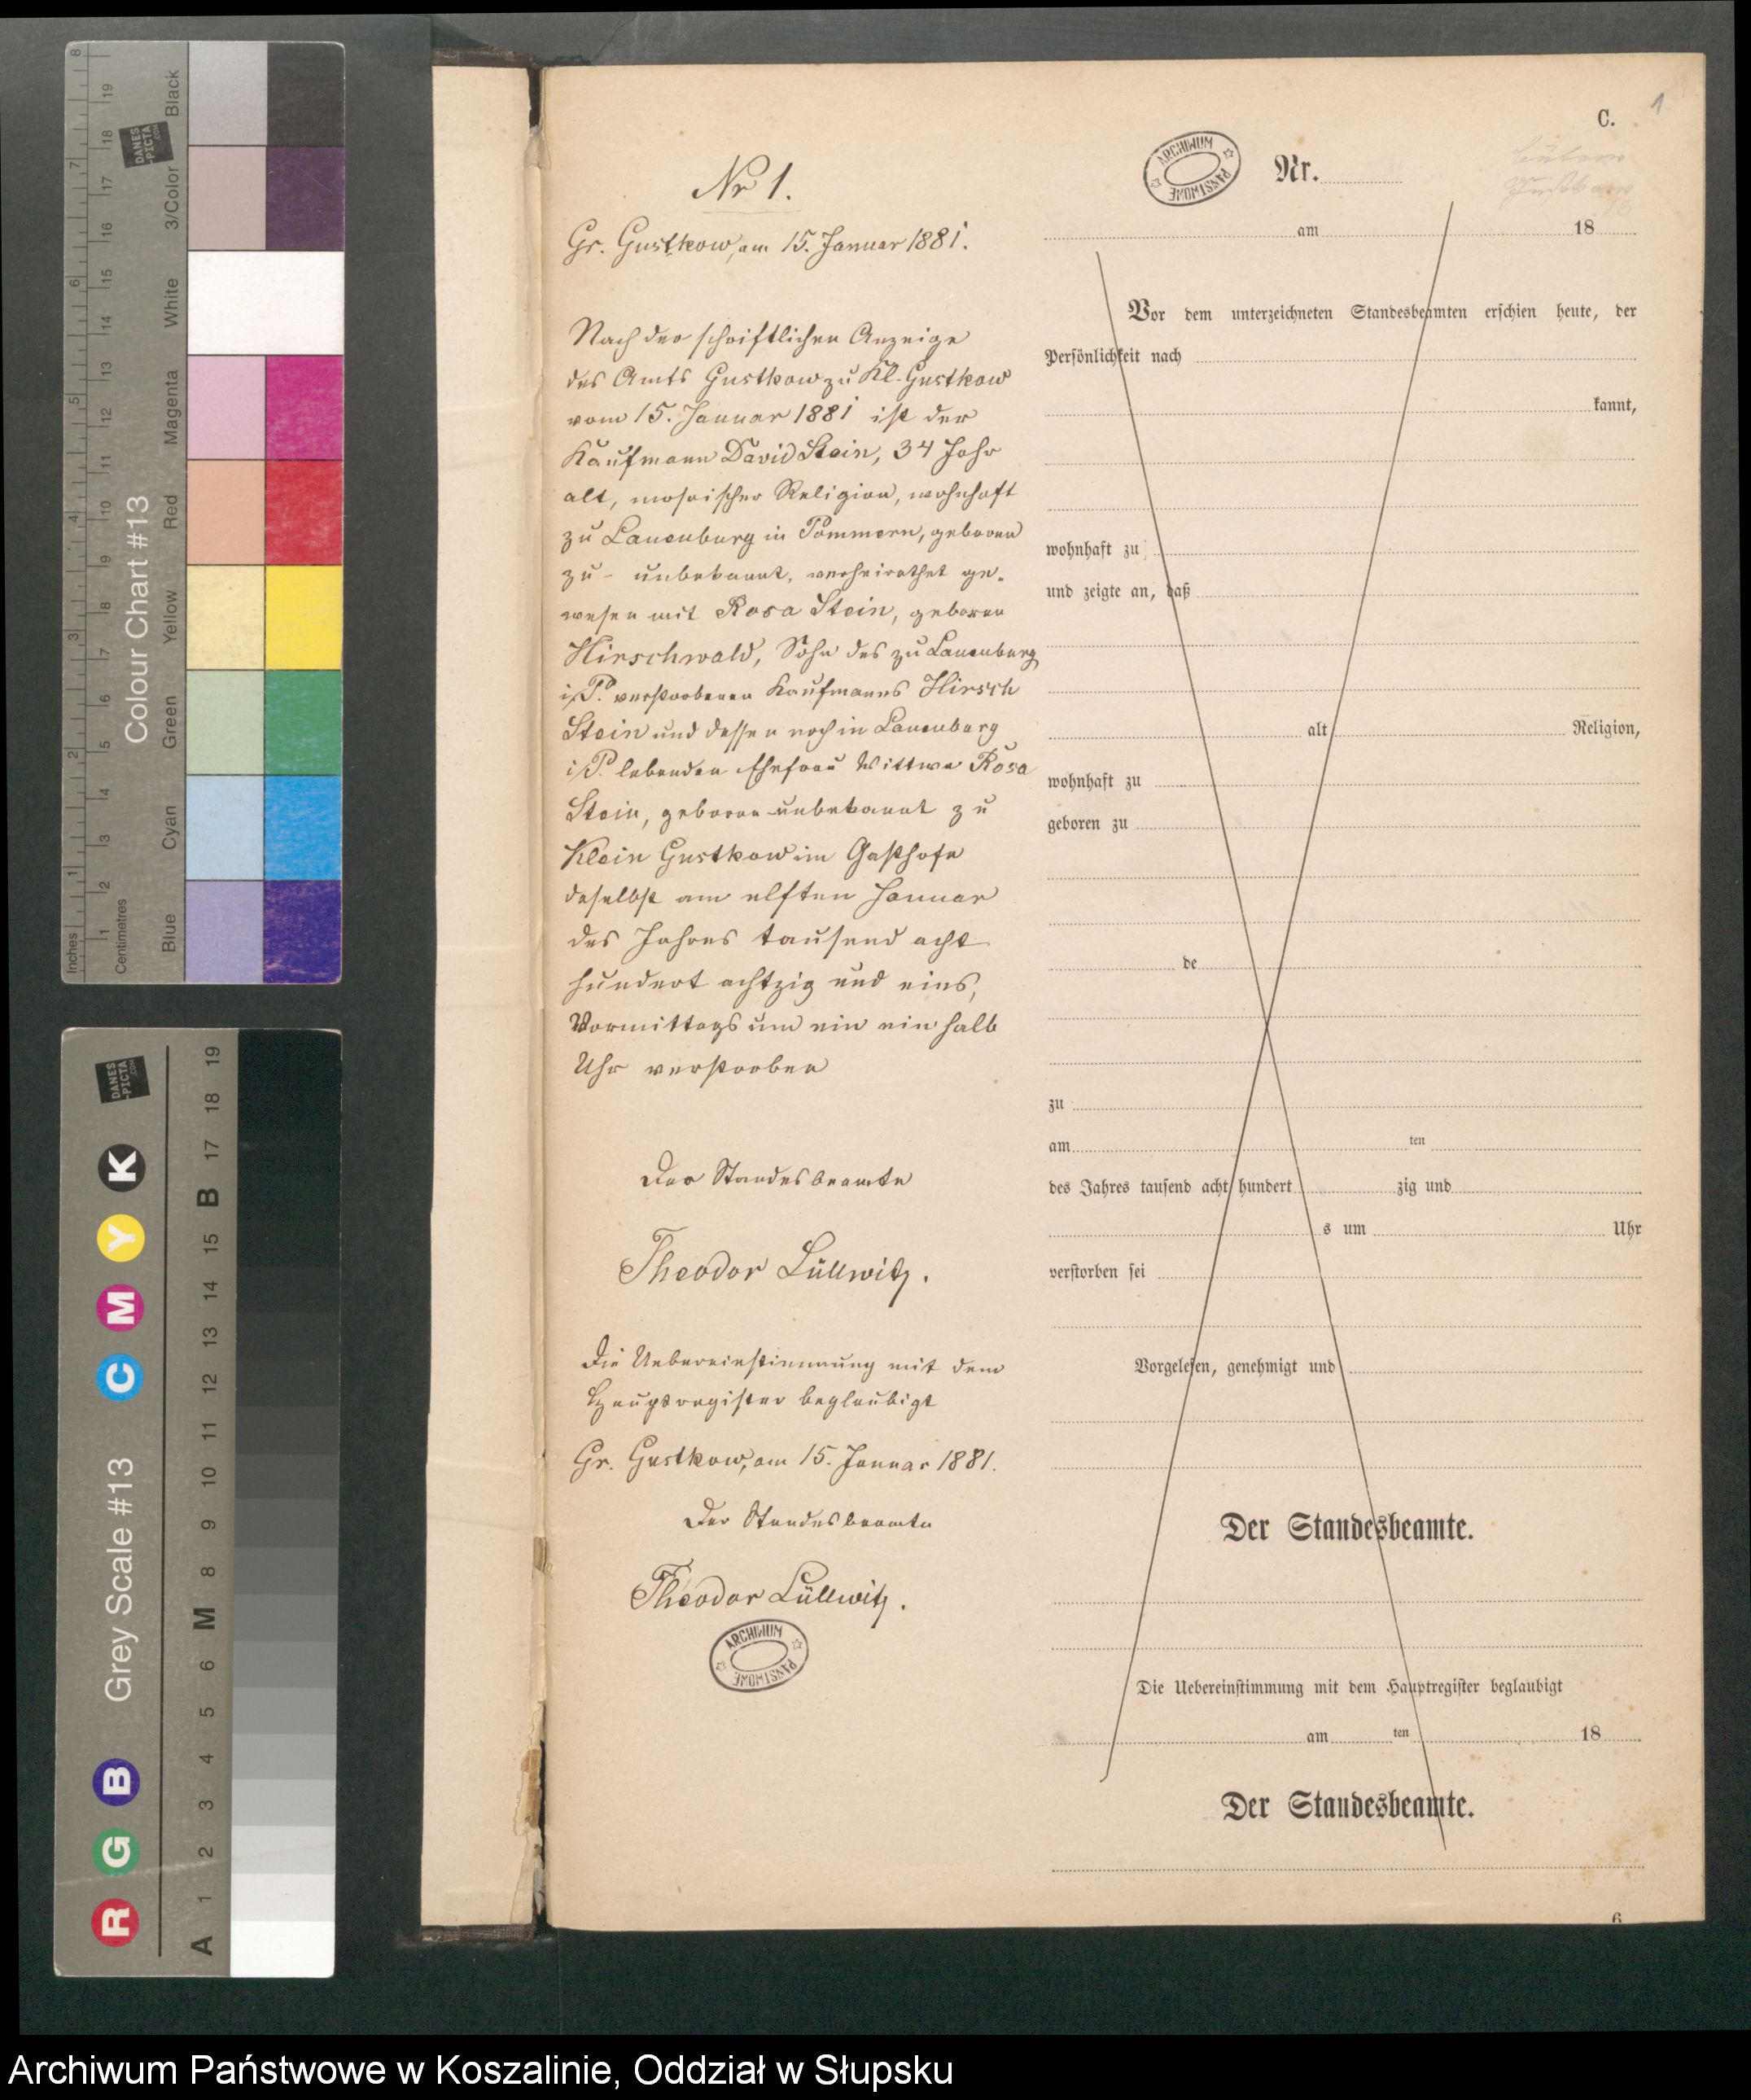 Nr 1.
Gr. Gustkow, am 15. Januar 1881.
Nach der schriftlichen Anzeige
des Amts Gustkow zu Kl. Gustkow
vom 15. Januar 1881 ist der
Kaufmann David Stein, 34 Jahr
alt, mosaischer Religion, wohnhaft
zu Lauenburg in Pommern, geboren
zu - unbekannt, verheirathet ge-
wesen mit Rosa Stein, geborene
Hirschwald, Sohn des zu Lauenburg
i/P. verstorbenen Kaufmanns Hirsch
Stein und dessen noch in Lauenburg
i/P. lebenden Ehefrau Wittwe Rosa
Stein, geborene unbekannt zu
Klein Gustkow im Gasthofe
daselbst am elften Januar
des Jahres tausend acht
hundert achtzig und eins,
Vormittags um ein ein halb
Uhr verstorben
Der Standesbeamte
Theodor Lüllwitz.
Die Uebereinstimmung mit dem
Hauptregister beglaubigt
Gr. Gustkow, am 15. Januar 1881.
Der Standesbeamte
Theodor Lüllwitz.
ARCHIWUM PAŃSTWOWE
1
C.
ARCHIWUM PAŃSTWOWE
Nr.
am 18
Vor dem unterzeichneten Standesbeamten erschien heute, der
Persönlichkeit nach
kannt,
wohnhaft zu
und zeigte an, daß
alt Religion,
wohnhaft zu
geboren zu
de
zu
am ten
des Jahres tausend acht hundert zig und
s um Uhr
verstorben sei
Vorgelesen, genehmigt und
Der Standesbeamte.
Die Uebereinstimmung mit dem Hauptregister beglaubigt
am ten 18
Der Standesbeamte.
6
Colour Chart #13
Blue Cyan Green Yellow Red Magenta White 3/Color Black
Inches 1 2 3 4 5 6 7 8
Centimetres 1 2 3 4 5 6 7 8 9 10 11 12 13 14 15 16 17 18 19
DANES
-PICTA
.COM
Grey Scale #13
R G B C M Y K
A 1 2 3 4 5 6 M 8 9 10 11 12 13 14 15 B 17 18 19
DANES
-PICTA
.COM
Archiwum Państwowe w Koszalinie, Oddział w Słupsku